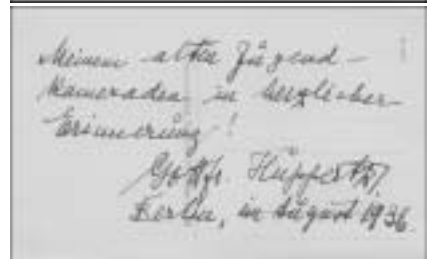 Meinem alten Jugend-
kameraden in herzlicher
Erinnerung!
Gottfr. Huppertz,
Berlin, im August 1936.